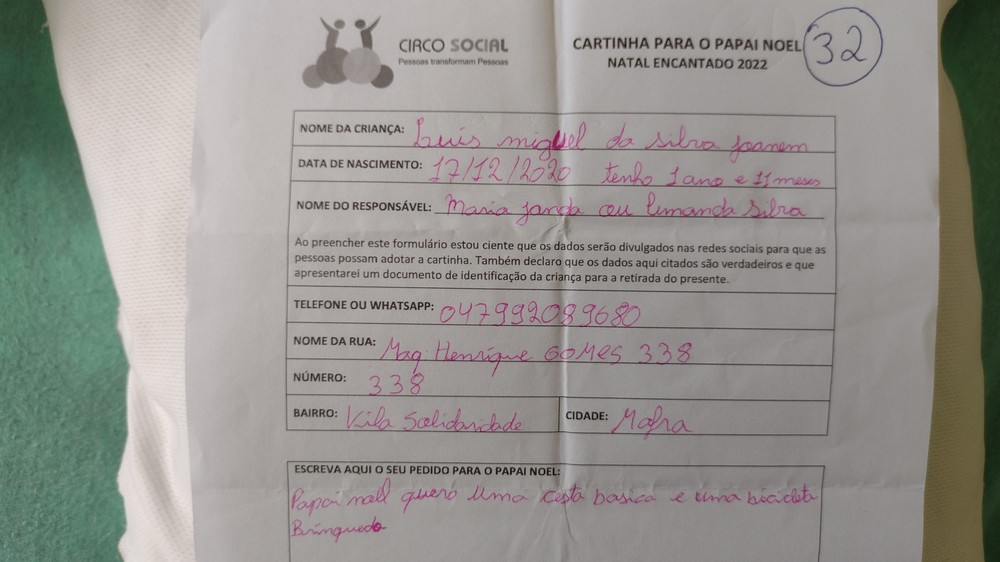 CIRCO SOCIAL
Pessoas transformam Pessoas
CARTINHA PARA O PAPAI NOEL
NATAL ENCANTADO 2022
32
NOME DA CRIANÇA: Luis miguel da silva Joanem
DATA DE NASCIMENTO: 17/12/2020 tenho 1 ano e 11 meses
NOME DO RESPONSÁVEL: Maria Janda ou Silva
Ao preencher este formulário estou ciente que os dados serão divulgados nas redes sociais para que as
pessoas possam adotar a cartinha. Também declaro que os dados aqui citados são verdadeiros e que
apresentarei um documento de identificação da criança para a retirada do presente.
TELEFONE OU WHATSAPP: 047992089680
NOME DA RUA: Maq. Henrique GOMES 338
NÚMERO: 338
BAIRRO: Vila Solidaridade CIDADE: Mafra
ESCREVA AQUI O SEU PEDIDO PARA O PAPAI NOEL:
Papai noell quero uma cesta basica e uma bicicleta
Brinquedo